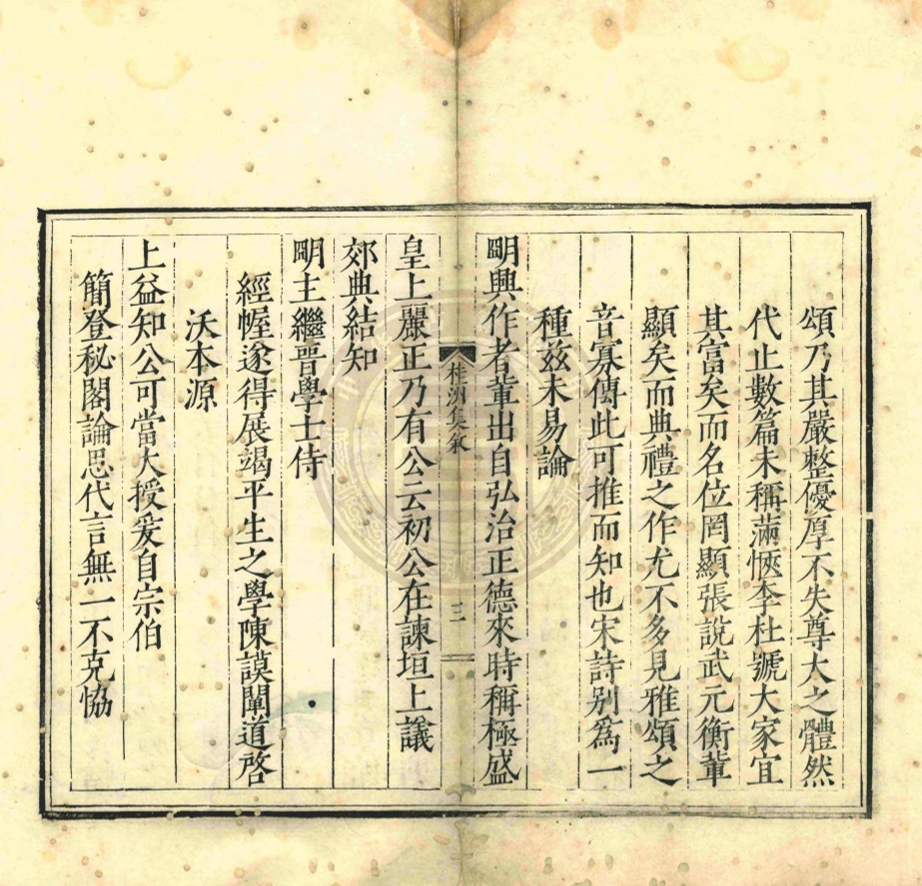 頌乃其嚴整優厚不失尊大之體然
代止數篇未稱滿愜李杜號大家宜
其富矣而名位罔顯張說武元衡軰
顯矣而典禮之作尤不多見雅頌之
音寡傳此可推而知也宋詩别為一
種茲未易論
明興作者軰出自弘治正德來時稱極盛
桂洲集叙
三
皇上嚴正乃有公云初公在諫垣上議
郊典結知
明主繼晉學士侍
經幄遂得展竭平生之學陳謨闡道啓
沃本源
上益知公可當大授爰自宗伯
簡登秘閣論思代言無一不克恊